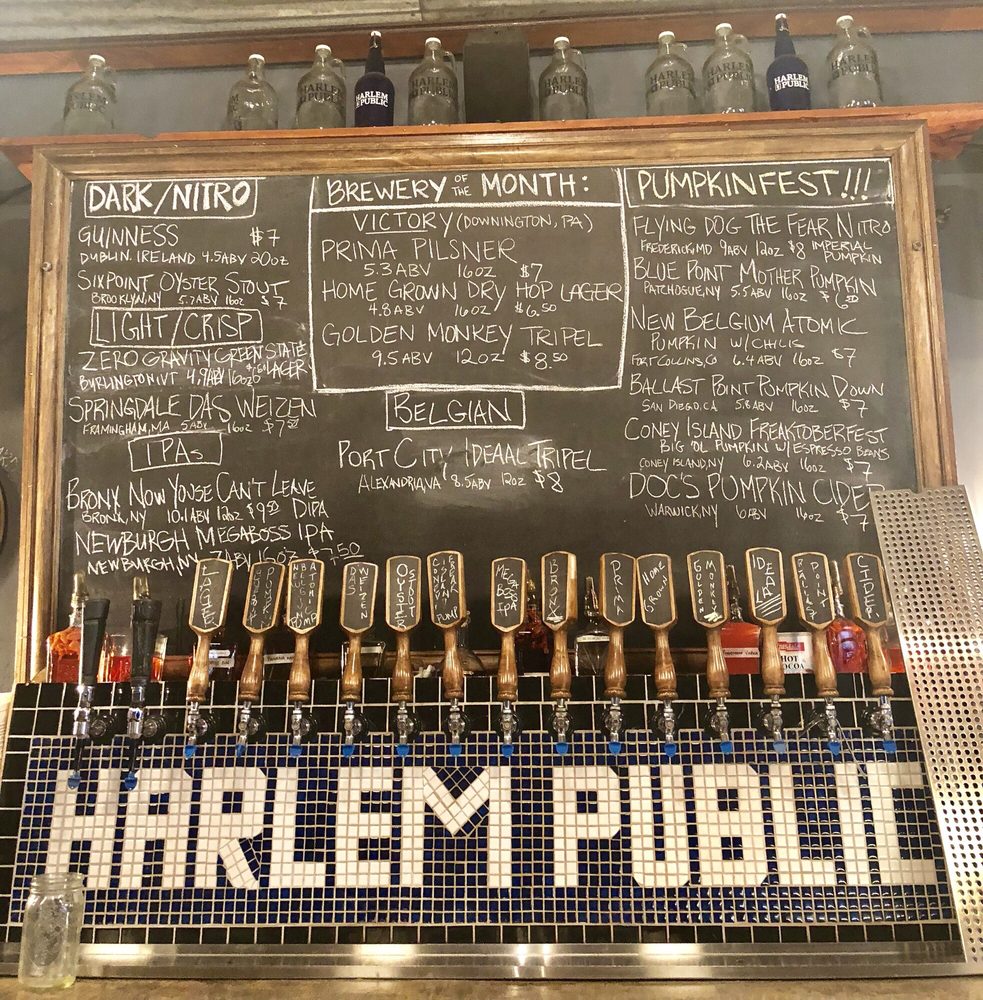 HARLEM PUBLIC
HARLEM PUBLIC
HARLEM PUBLIC
HARLEM PUBLIC
HARLEM PUBLIC
HARLEM PUBLIC
HARLEM PUBLIC
HARLEM PUBLIC
HARLEM PUBLIC
DARK/NITRO
GUINNESS $7
DUBLIN. IRELAND 4.5ABV 20OZ
SIXPOINT OYSTER STOUT
BROOKLYN,NY 5.7ABV 16OZ $7
LIGHT/CRISP
ZERO GRAVITY GREEN STATE
LAGER
BURLINGTON VT 4.9ABV 16OZ
SPRINGDALE DAS WEIZEN
FRAMINGHAM, MA 5ABV 16OZ $7.50
IPAS
BRONX NOW YOUSE CAN'T LEAVE
BRONX, NY 10.1ABV 12OZ $9.50 DIPA
NEWBURGH MEGABOSS IPA
NEWBURGH, NY 7ABV 16OZ $7.50
BREWERY OF THE MONTH:
VICTORY (DOWNINGTON, PA)
PRIMA PILSNER
5.3 ABV 16OZ $7
HOME GROWN DRY HOP LAGER
4.8 ABV 16OZ $6.50
GOLDEN MONKEY TRIPEL
9.5 ABV 12OZ $8.50
BELGIAN
PORT CITY IDEAAL TRIPEL
ALEXANDRIA,VA 8.5ABV 12OZ $8
PUMPKINFEST!!!
FLYING DOG THE FEAR NITRO
FREDERICK,MD 9ABV 12OZ $8 IMPERIAL PUMPKIN
BLUE POINT MOTHER PUMPKIN
PATCHOGUE,NY 5.5 ABV 16OZ $6.50
NEW BELGIUM ATOMIC
PUMPKIN W/CHILIS
FORT COLLINS,CO 6.4 ABV 16OZ $7
BALLAST POINT PUMPKIN DOWN
SAN DIEGO,CA 5.8 ABV 16OZ $7
CONEY ISLAND FREAKTOBERFEST
BIG OL PUMPKIN W/ESPRESSO BEANS
CONEY ISLAND,NY 6.2ABV 16OZ $7
DOC'S PUMPKIN CIDER
WARWICK,NY 6ABV 16OZ $7
LAGER
DAS WEIZEN
OYSTER STOUT
MEGA BOSS IPA
BRONX
PRIMA
HOME GROWN
GOLDEN MONKEY
IDEAAL
BALLAST POINT
CIDER
HOT COCOA
HARLEM PUBLIC